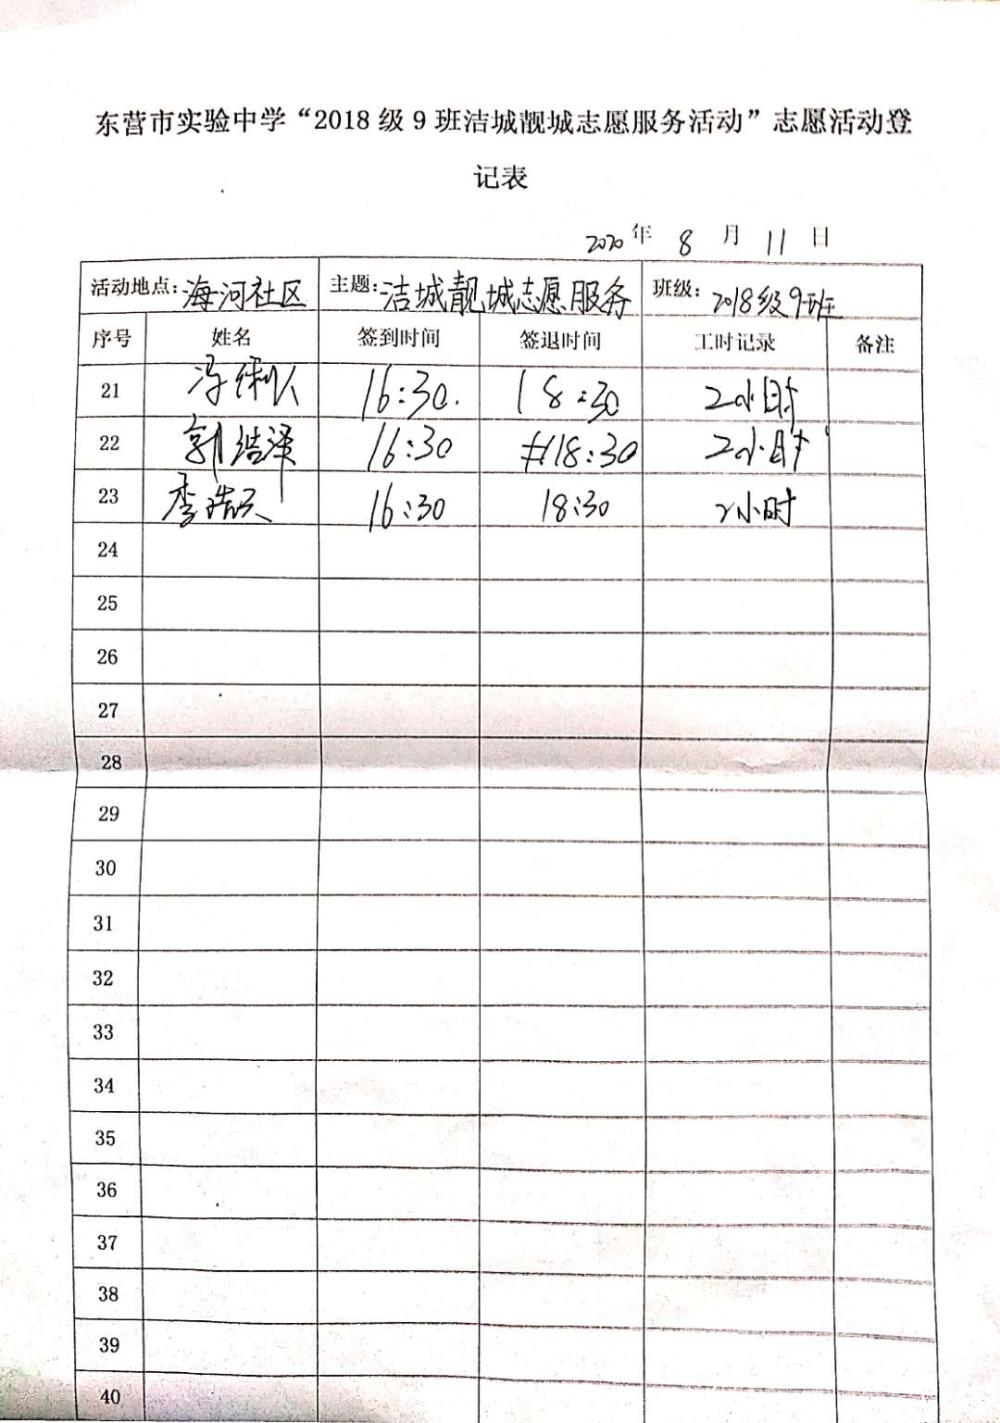 东营市实验中学“2018 级 9 班洁城靓城志愿服务活动”志愿活动登
记表
2020 年 8 月 11 日
活动地点: 海河社区 主题: 洁城靓城志愿服务 班级: 2018级9班
序号 姓名 签到时间 签退时间 工时记录 备注
21 16:30. 18:30 2小时
22 郭浩泽 16:30 18:30 2小时
23 李浩天 16:30 18:30 2小时
24
25
26
27
28
29
30
31
32
33
34
35
36
37
38
39
40